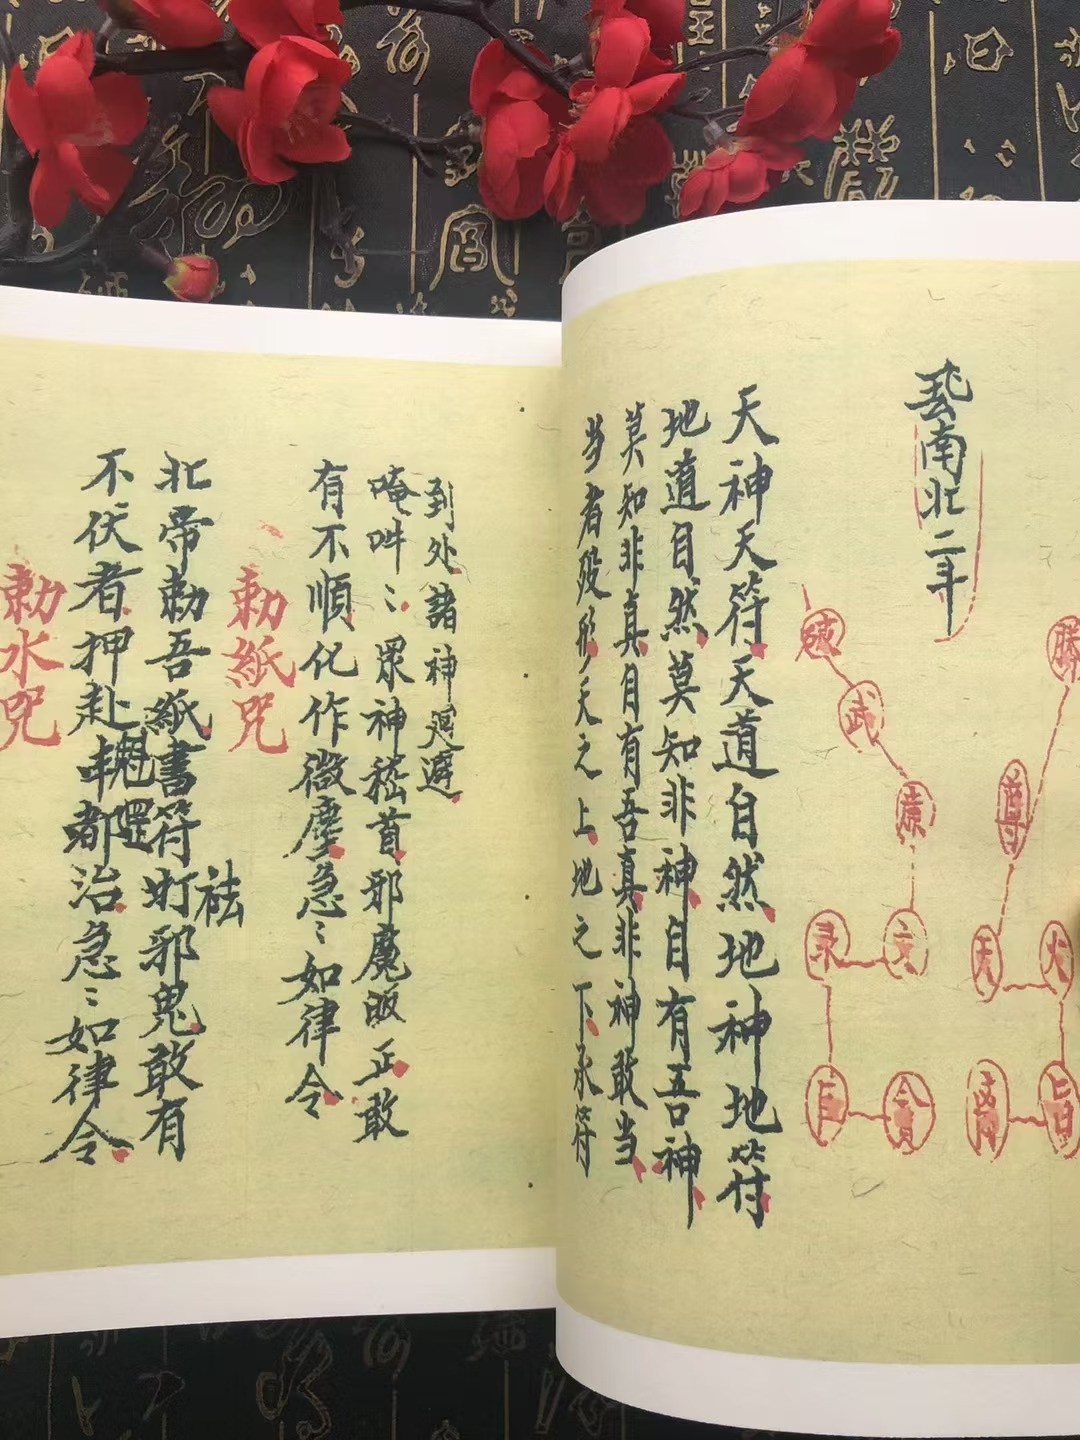 南北二斗
武
廉
文
录
巨
貪
尊
天
火
天神天符天道自然地神地符
地道自然莫知非神自有吾神
莫知非真自有吾真非神敢当
当者殁形天之上地之下承符
到处諸神廻避
唵吽〻眾神嵇首邪魔皈正敢
有不順化作微塵急〻如律令
勅紙咒
祛
北帝勅吾紙書符打邪鬼敢有
不伏者押赴都治急〻如律令
勅水咒